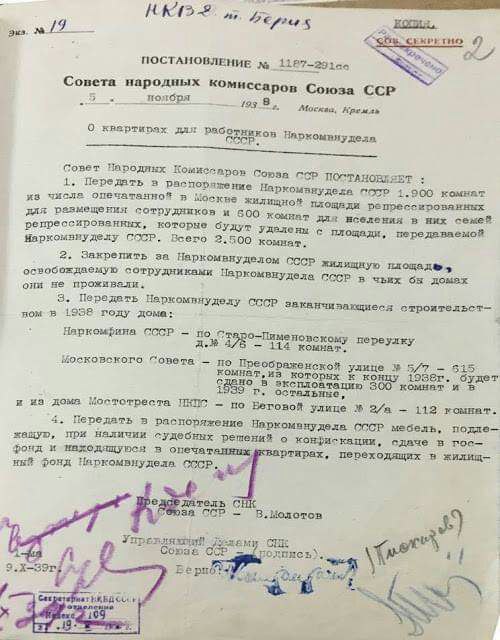 Экз. № 19
НКВД т. Берия
КОПИЯ.
СОВ. СЕКРЕТНО
Рассекречено
2
ПОСТАНОВЛЕНИЕ № 1187-291сс
Совета народных комиссаров Союза ССР
5 . ноября 1938 г. Москва, Кремль
О квартирах для работников Наркомвнудела
СССР.
Совет Народных Комиссаров Союза ССР ПОСТАНОВЛЯЕТ :
1. Передать в распоряжение Наркомвнудела СССР 1.900 комнат
из числа опечатанной в Москве жилищной площади репрессированных
для размещения сотрудников и 600 комнат для вселения в них семей
репрессированных, которые будут удалены с площади, передаваемой
Наркомвнуделу СССР. Всего 2.500 комнат.
2. Закрепить за Наркомвнуделом СССР жилищную площадь,
освобождаемую сотрудниками Наркомвнудела СССР в чьих бы домах
они не проживали.
3. Передать Наркомвнуделу СССР заканчивающиеся строительст-
вом в 1938 году дома:
Наркомфина СССР - по Старо-Пименовскому переулку
д.№ 4/6 - 114 комнат.
Московского Совета - по Преображенской улице № 5/7 - 615
комнат,из которых к концу 1938г. будет
сдано в эксплоатацию 300 комнат и в
1939 г. остальные,
и из дома Мостотреста НКПС - по Беговой улице № 2/а - 112 комнат.
4. Передать в распоряжение Наркомвнудела СССР мебель, подле-
жащую, при наличии судебных решений о конфискации, сдаче в гос-
фонд и находящуюся в опечатанных квартирах, переходящих в жилищ-
ный фонд Наркомвнудела СССР.
Председатель СНК
Союза ССР - В.Молотов
Управляющий Делами СНК
Союза ССР - (подпись).
1-ма
9.X-39г.
Верно:
Секретариат НКВД СССР
отделение
Индекс 109
19